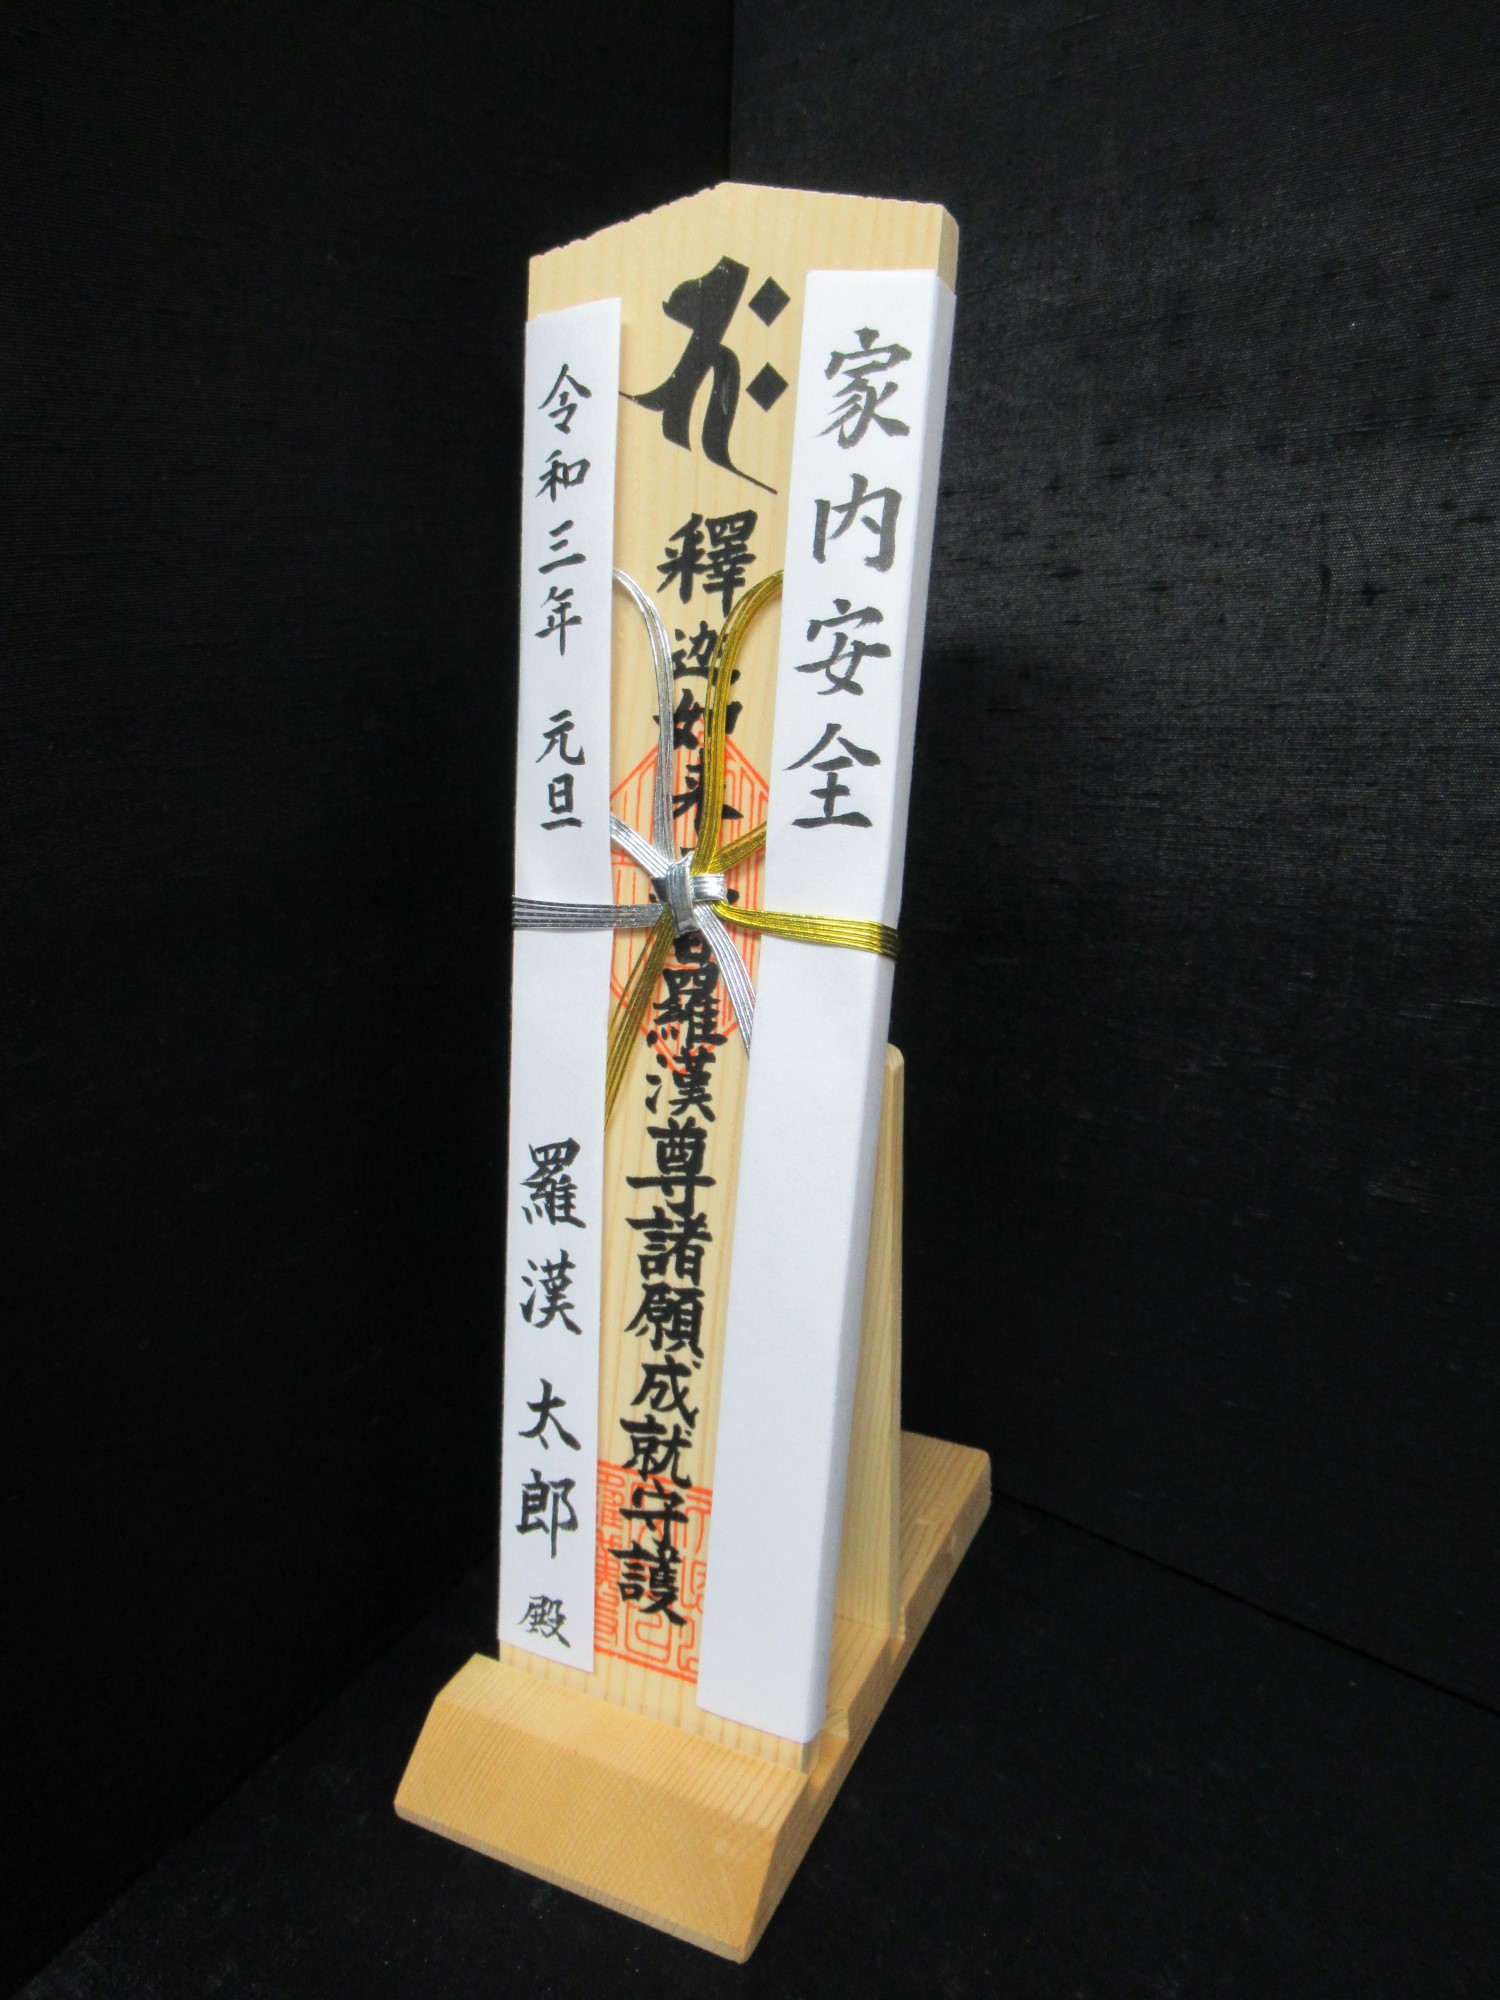 家内安全
釋迦如来
羅漢尊諸願成就守護
令和三年 元旦
羅漢 太郎 殿